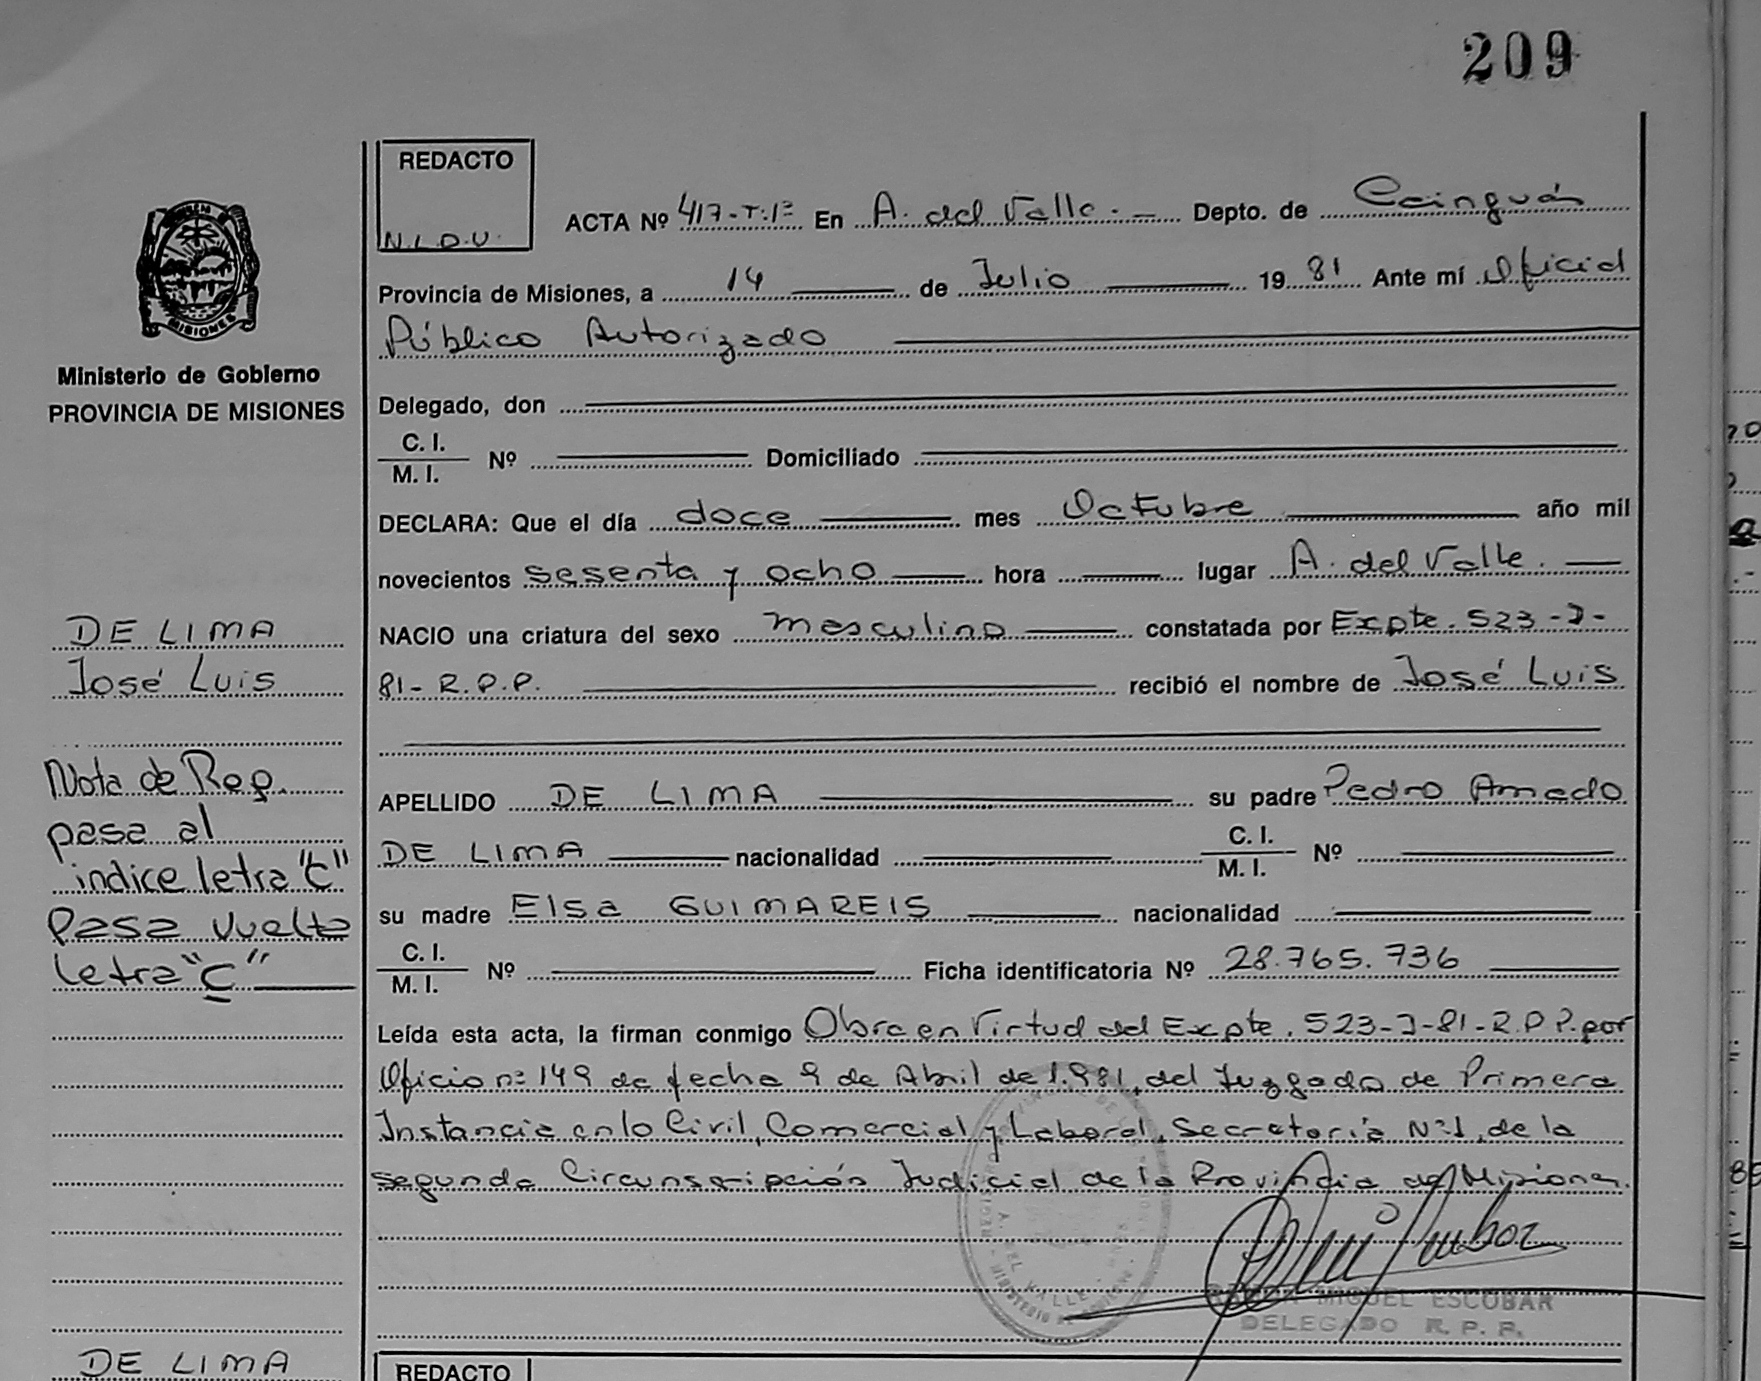 209
REDACTO
N.L.D.U.
ACTA Nº 417-T:1º En A. del Valle.- Depto. de Cainguás
Provincia de Misiones, a 14 de Julio 1981 Ante mí Oficial
Público Autorizado
MISIONES
Ministerio de Gobierno
PROVINCIA DE MISIONES
Delegado, don
C. I.
M. I. Nº Domiciliado
DECLARA: Que el día doce mes Octubre año mil
novecientos sesenta y ocho hora lugar A. del Valle.
DE LIMA
José Luis
NACIO una criatura del sexo masculino constatada por Expte. 523-J-
81-R.P.P. recibió el nombre de José Luis
Nota de Ref.
pasa al
indice letra "C"
Pasa vuelta
letra "C"
APELLIDO DE LIMA su padre Pedro Amado
DE LIMA nacionalidad C. I.
M. I. Nº
su madre Elsa GUIMAREIS nacionalidad
C. I.
M. I. Nº Ficha identificatoria Nº 28.765.736
Leída esta acta, la firman conmigo Obra en Virtud del Expte. 523-J-81-R.P.P. por
Oficio nº 149 de fecha 9 de Abril de 1.981, del Juzgado de Primera
Instancia en lo Civil, Comercial y Laboral, Secretoría Nº1, de la
segunda Circunscripción Judicial de la Provincia de Misiones.
MIGUEL ESCOBAR
DELEGADO R. P. P.
DE LIMA
REDACTO